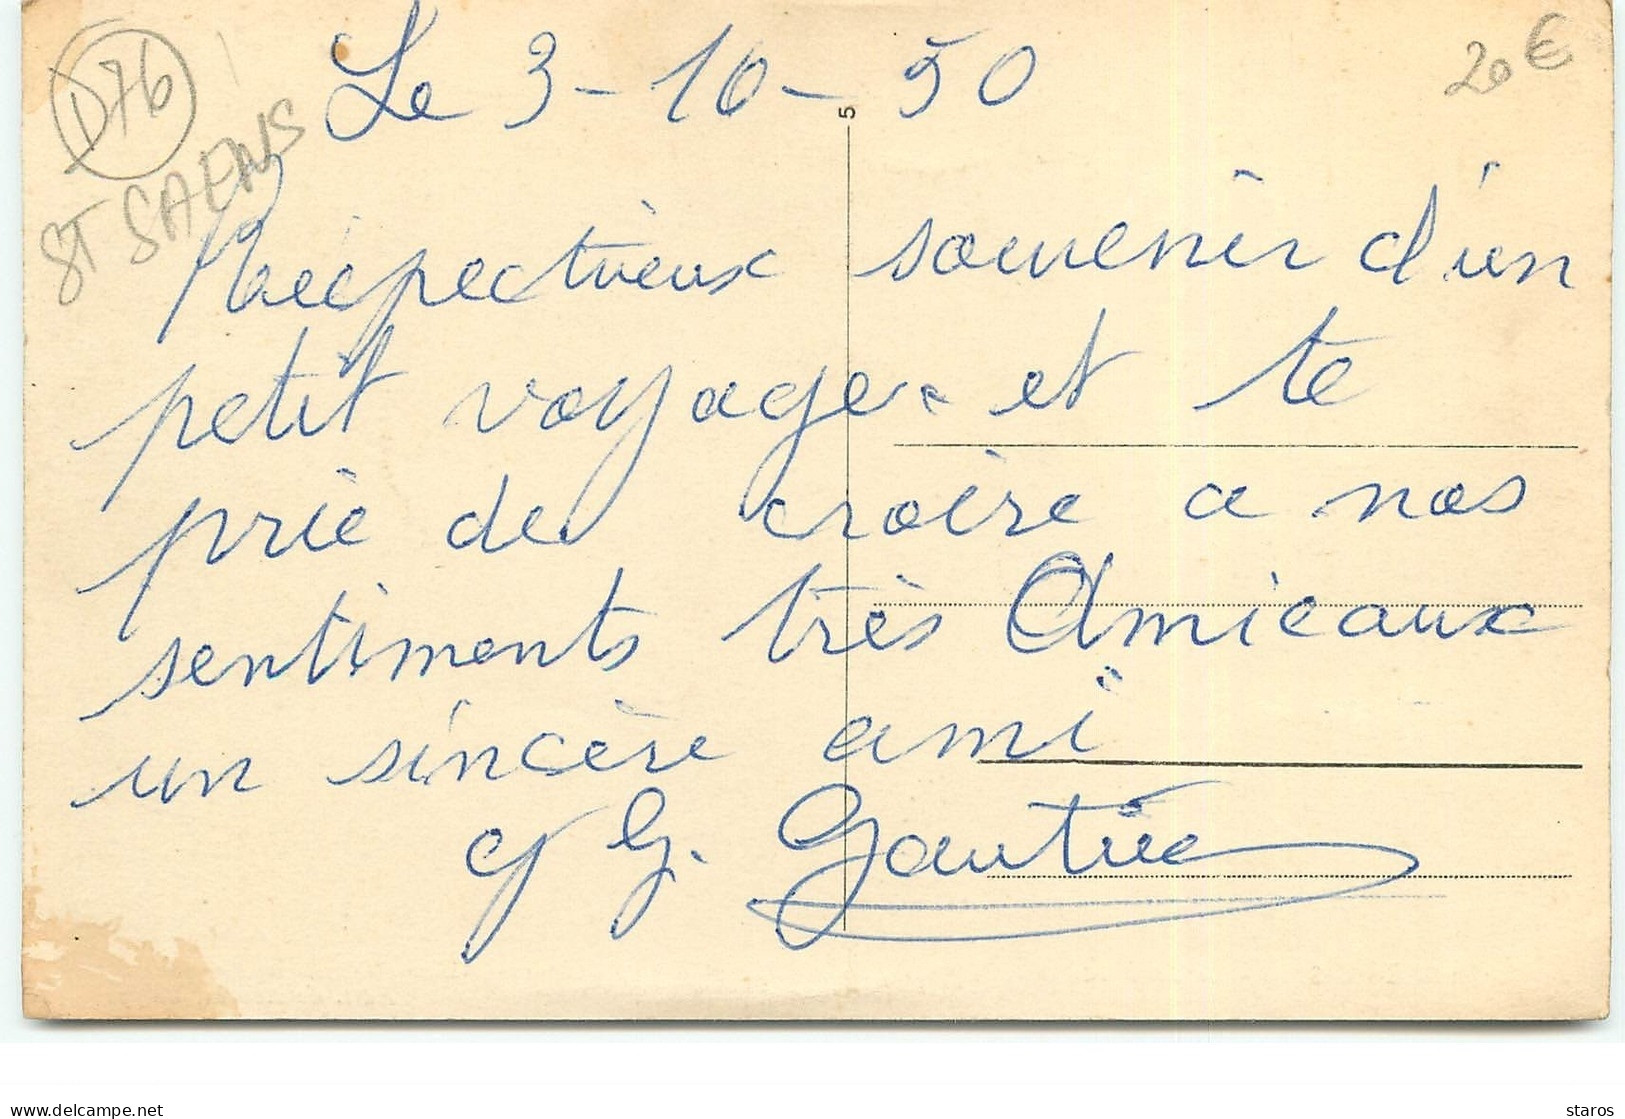 D76
ST SAENS
20€
Le 3-10-50
5
Réspectueux souvenir d'un
petit voyage. et te
prie de croire a nos
sentiments très Amicaux
un sincère ami
G. Gautier
delcampe.net
staros